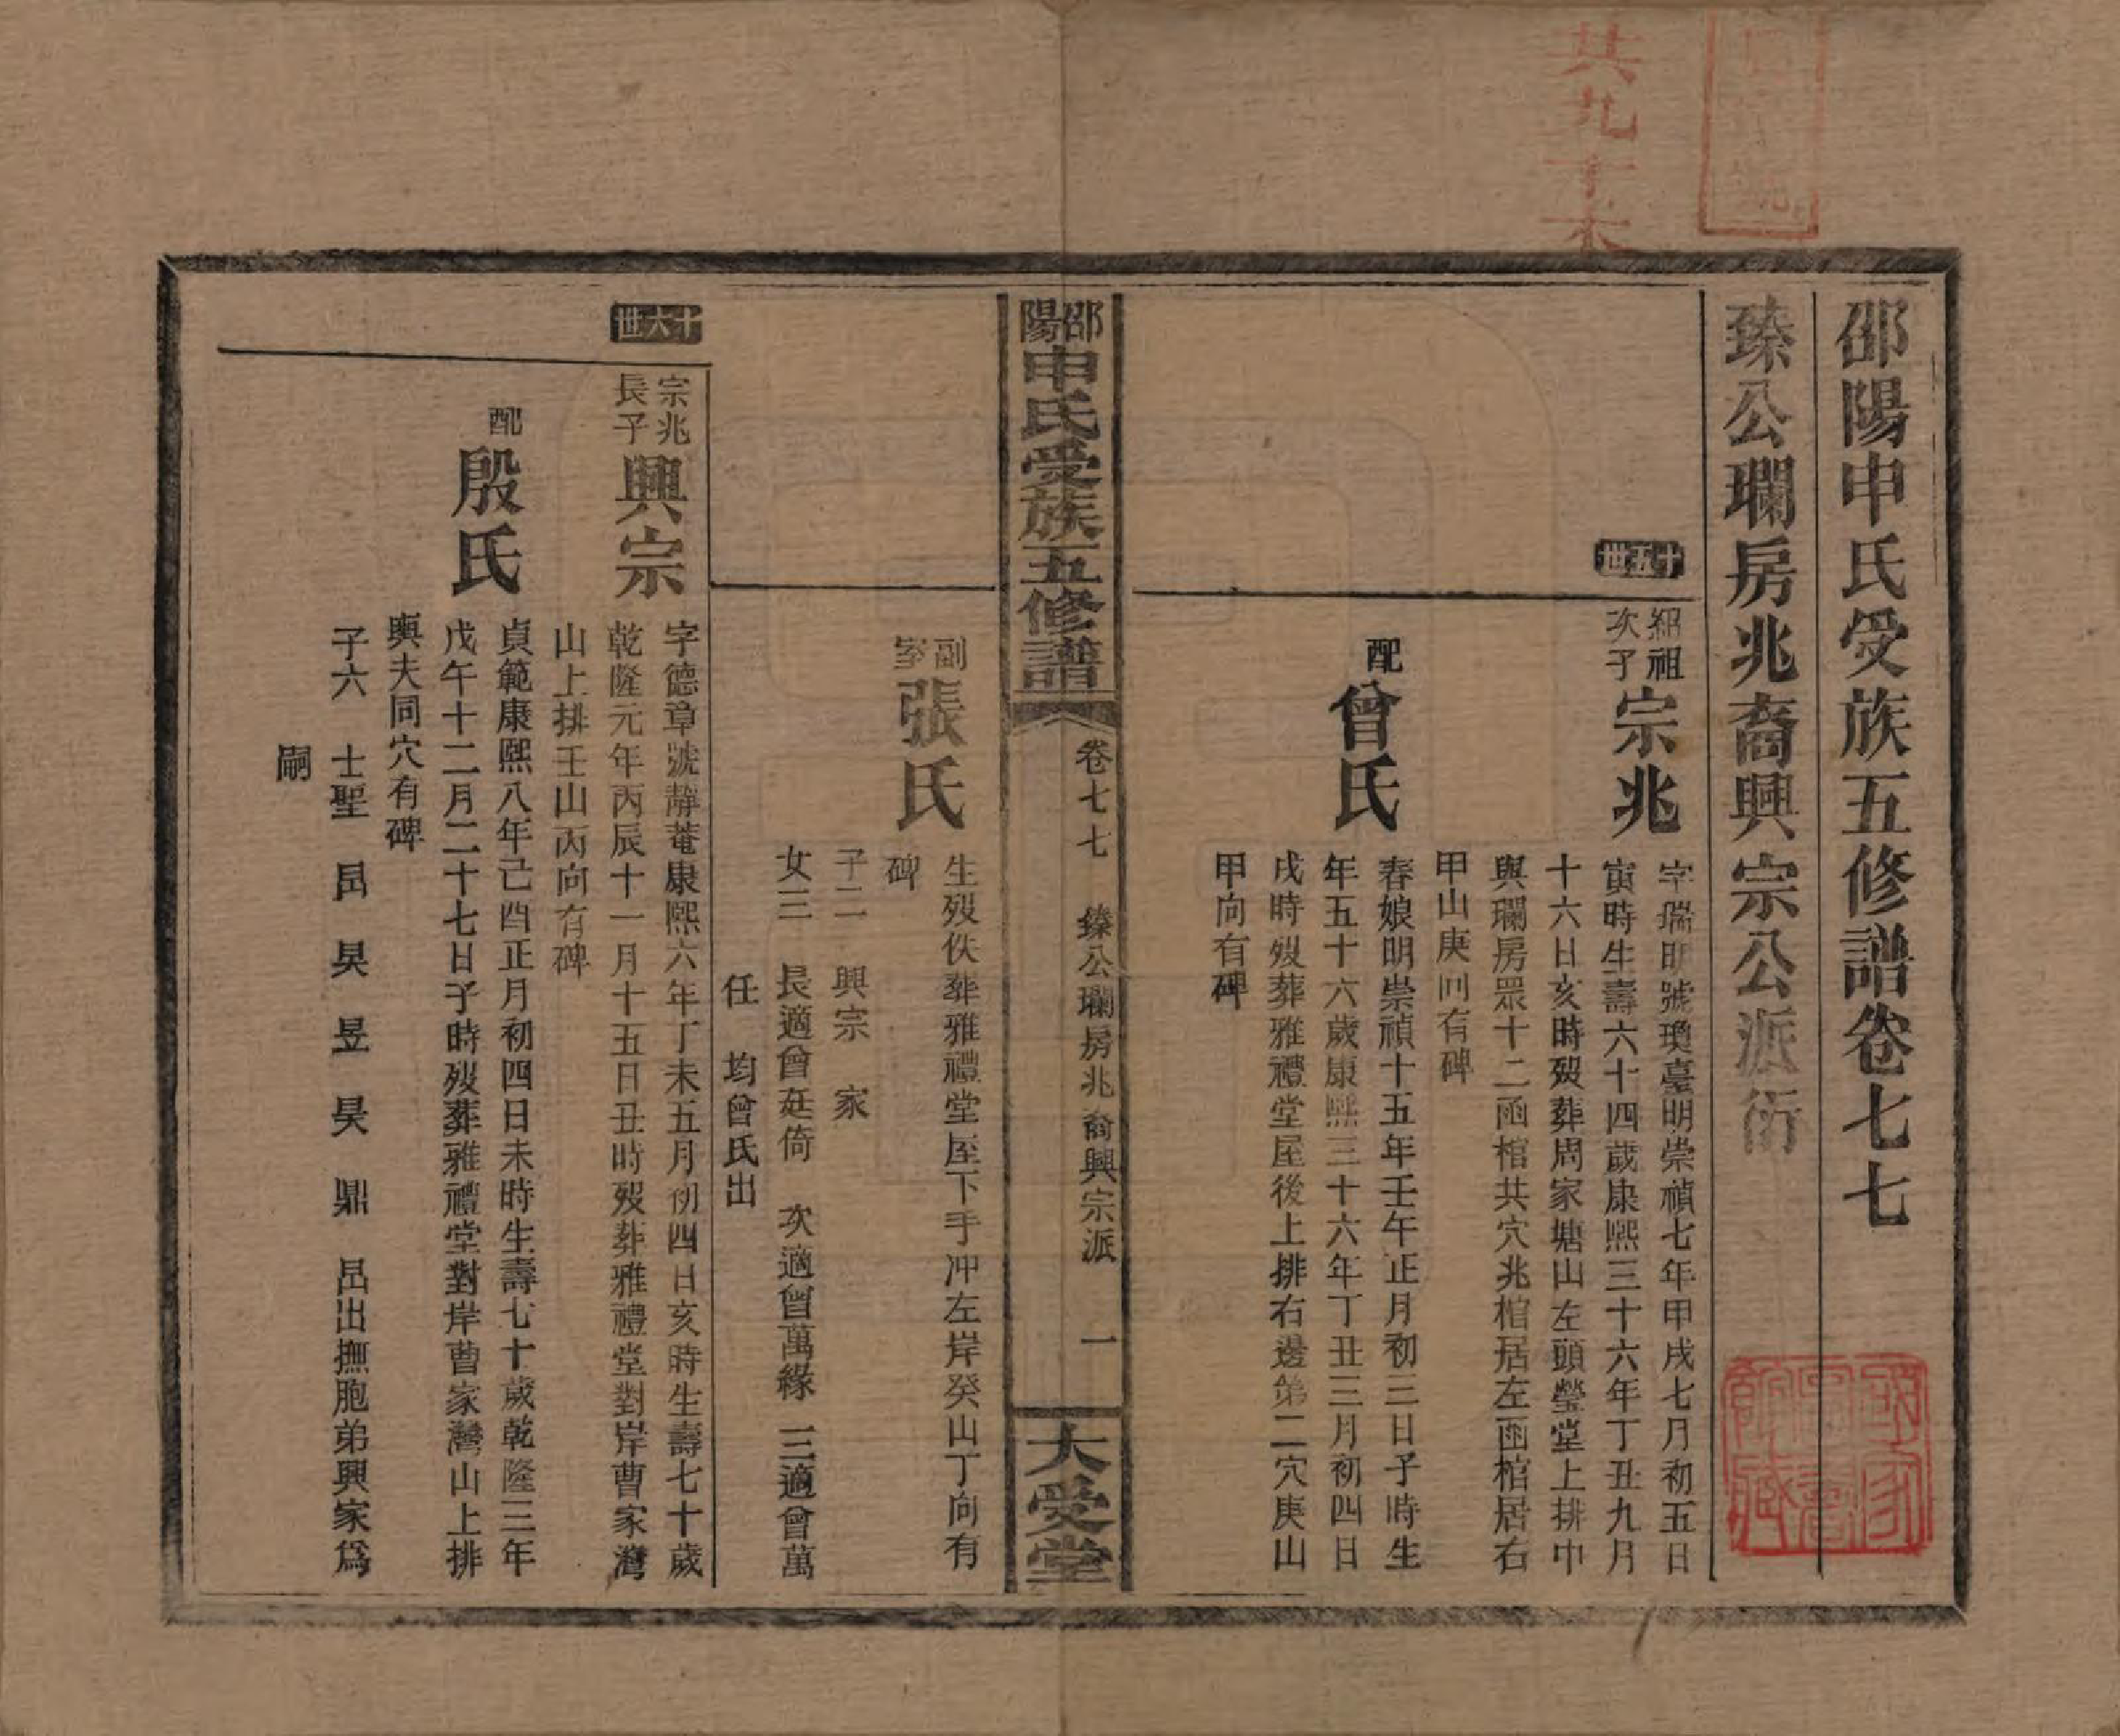 共九十本
邵陽申氏受族五修譜卷七七
臻公瓓房兆裔興宗公派衍
國家圖書館藏
十五世
紹祖次子
宗兆
字瑞明號瓊臺明崇禎七年甲戌七月初五日
寅時生壽六十四歲康熙三十六年丁丑九月
十六日亥時歿葬周家塘山左頭瑩堂上排中
與瓓房眾十二函棺共穴兆棺居左函棺居右
甲山庚向有碑
配
曾氏
春娘明崇禎十五年壬午正月初三日子時生
年五十六歲康熙三十六年丁丑三月初四日
戌時歿葬雅禮堂屋後上排右邊第二穴庚山
甲向有碑
邵陽申氏受族五修譜
卷七七 臻公瓓房兆裔興宗派 一
大受堂
副室
張氏
生歿佚葬雅禮堂屋下手冲左岸癸山丁向有
碑
子二 興宗 家
女三 長適曾廷倚 次適曾萬緣 三適曾萬
任 均曾氏出
十六世
宗兆長子
興宗
字德章號靜菴康熙六年丁未五月初四日亥時生壽七十歲
乾隆元年丙辰十一月十五日丑時歿葬雅禮堂對岸曹家灣
山上排壬山丙向有碑
配
殷氏
貞範康熙八年己酉正月初四日未時生壽七十歲乾隆三年
戊午十二月二十七日子時歿葬雅禮堂對岸曹家灣山上排
與夫同穴有碑
子六 士聖 昂 昊 昱 昊 鼎 昂出撫胞弟興家爲
嗣